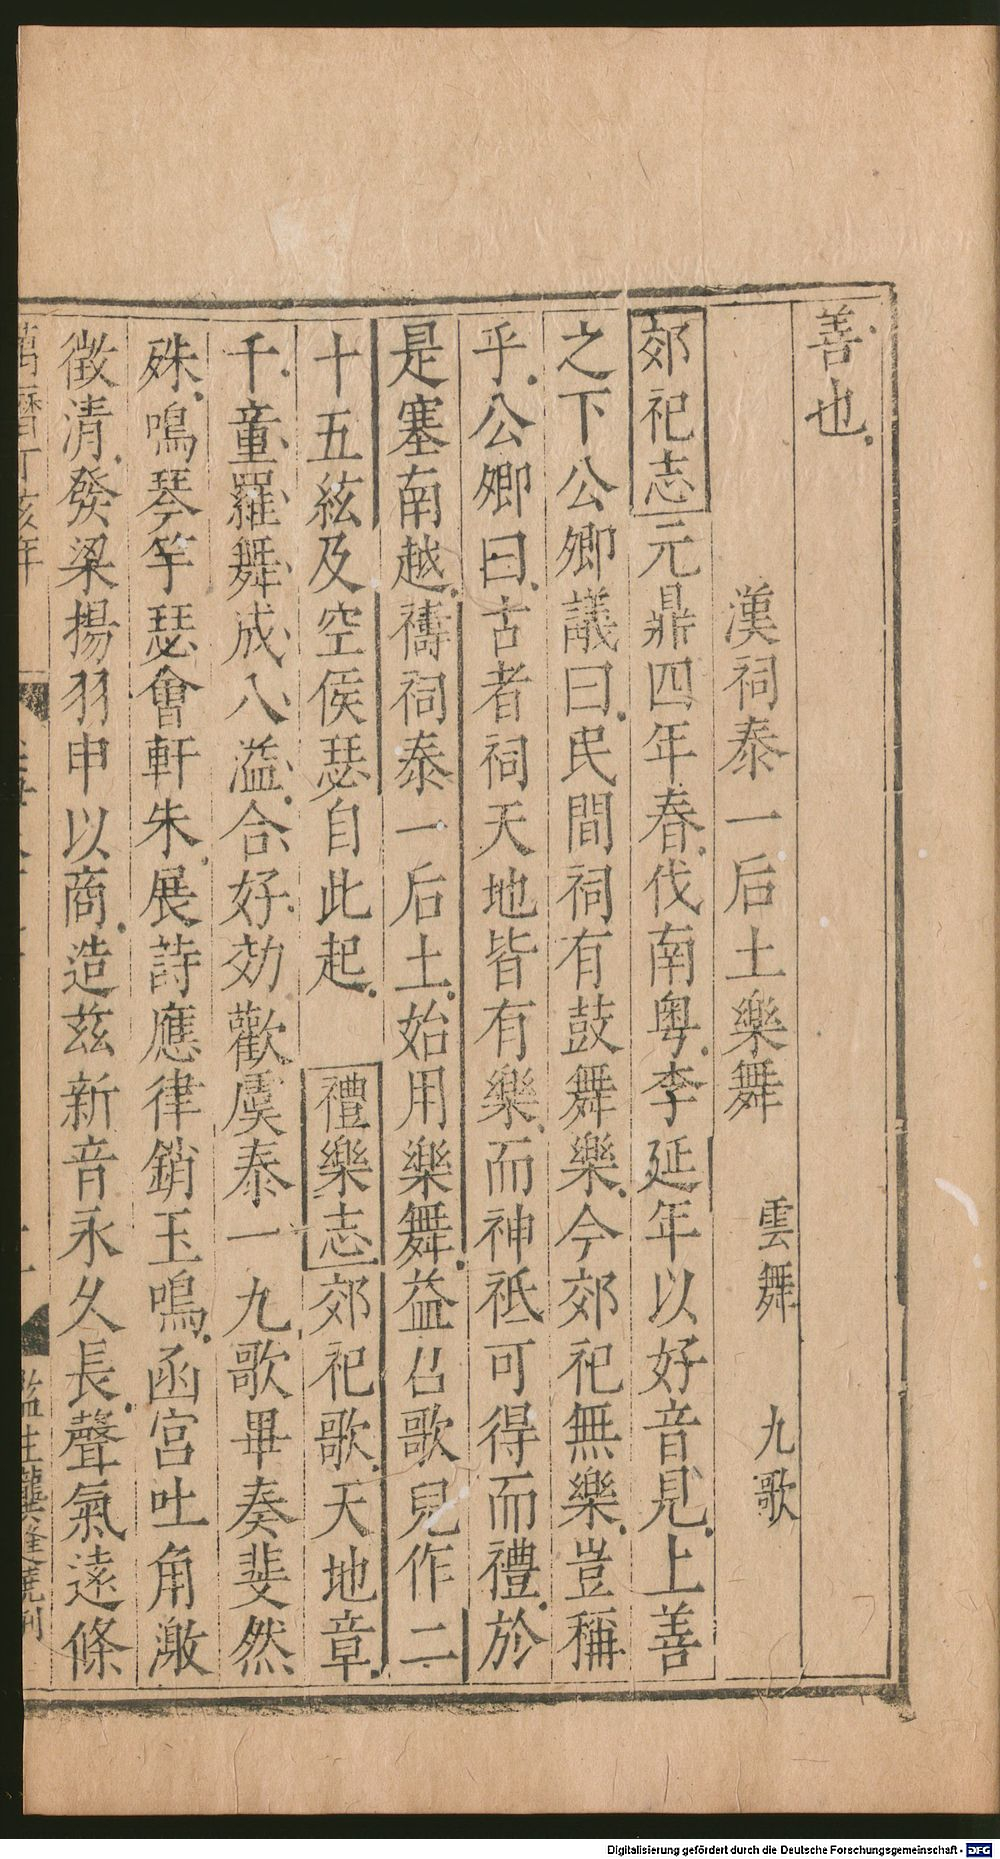 善也
漢祠泰一后土樂舞 雲舞 九歌
郊祀志元鼎四年春伐南粵李延年以好音見上善
之下公卿議曰民間祠有鼓舞樂今郊祀無樂豈稱
乎公卿曰古者祠天地皆有樂而神祇可得而禮於
是塞南越禱祠泰一后土始用樂舞益召歌兒作二
十五絃及空侯瑟自此起 禮樂志郊祀歌天地章
千童羅舞成八溢合好効歡虞泰一九歌畢奏斐然
殊鳴琴竽瑟會軒朱展詩應律銷玉鳴函宮吐角激
徵清發梁揚羽申以商造茲新音永久長聲氣遠條
萬曆丁亥年
監生龔逢堯刊
Digitalisierung gefördert durch die Deutsche Forschungsgemeinschaft - DFG